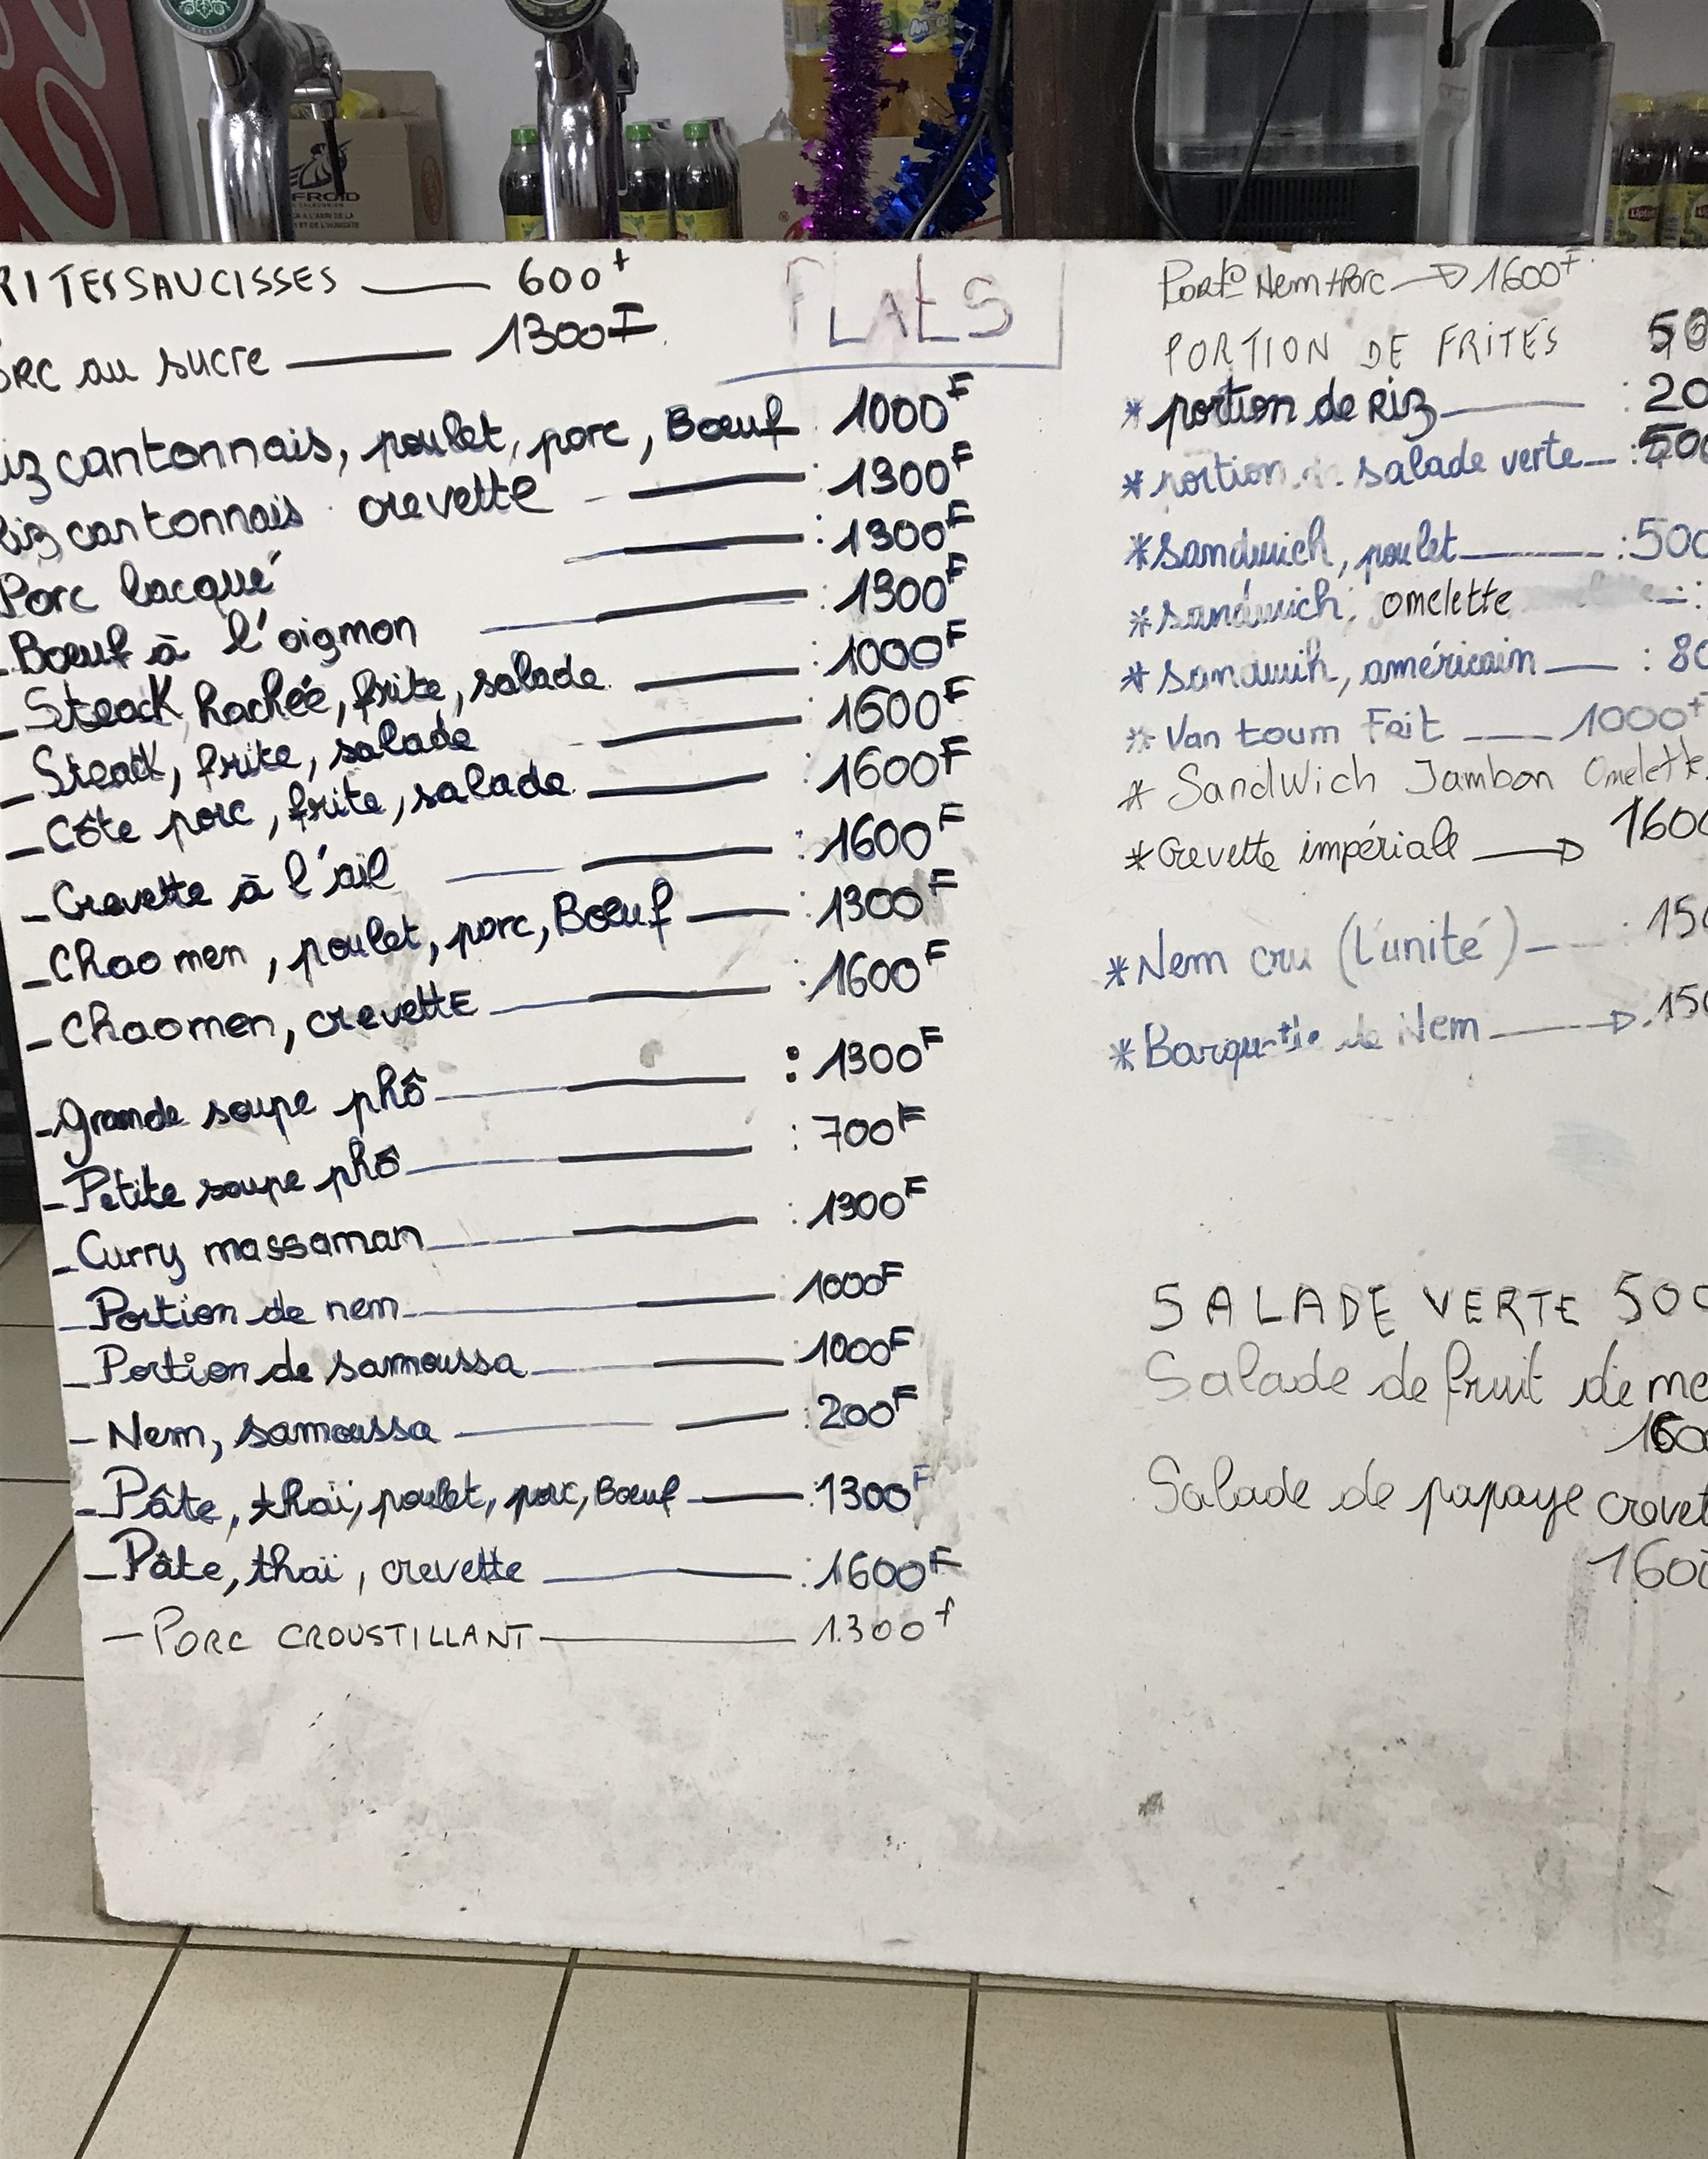 RITES SAUCISSES 600F
ORC au sucre 1300F
PLATS
iz cantonnais, poulet, porc, Bœuf 1000F
Riz cantonnais crevette : 1300F
Porc lacqué : 1300F
- Bœuf à l'oignon : 1300F
- Steack hachée, frite, salade : 1000F
- Steack, frite, salade : 1600F
- Côte porc, frite, salade : 1600F
- Crevette à l'ail : 1600F
- Chao men, poulet, porc, Bœuf : 1300F
- Chaomen, crevette : 1600F
- Grande soupe phô : 1300F
- Petite soupe phô : 700F
- Curry massaman : 1300F
- Portion de nem 1000F
- Portion de samoussa : 1000F
- Nem, samoussa : 200F
- Pâte, thaï, poulet, porc, Bœuf : 1300F
- Pâte, thaï, crevette : 1600F
- PORC CROUSTILLANT 1.300f
Porto Nem + Porc → 1600F
PORTION DE FRITES 50
* portion de Riz : 20
* portion salade verte : 500
* Sandwich, poulet : 500
* Sandwich, omelette :
* Sandwih, américain : 80
* Van toum Fait 1000F
* Sandwich Jambon Omelette
* Crevette impériale → 1600
* Nem cru (L'unité) : 150
* Barquette de Nem → 150
SALADE VERTE 500
Salade de fruit de me
1600
Salade de papaye crevet
1600
FROID
Lipton